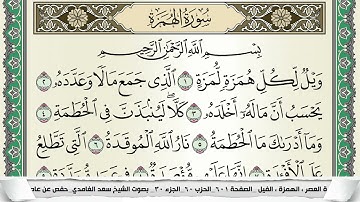 سُورَةُ الهُمَزَةِ
بِسْمِ اللَّهِ الرَّحْمَٰنِ الرَّحِيمِ
وَيْلٌ لِّكُلِّ هُمَزَةٍ لُّمَزَةٍ ١ الَّذِي جَمَعَ مَالًا وَعَدَّدَهُ ٢
يَحْسَبُ أَنَّ مَالَهُ أَخْلَدَهُ ٣ كَلَّا لَيُنبَذَنَّ فِي الْحُطَمَةِ ٤
وَمَا أَدْرَاكَ مَا الْحُطَمَةُ ٥ نَارُ اللَّهِ الْمُوقَدَةُ ٦ الَّتِي تَطَّلِعُ
عَلَى الْأَفْئِدَةِ ٧ إِنَّهَا عَلَيْهِم مُّؤْصَدَةٌ ٨
ة العصر ، الهمزة ، الفيل الصفحة ٦٠١ الحزب ٦٠ الجزء ٣٠ بصوت الشيخ سعد الغامدي حفص عن عاص